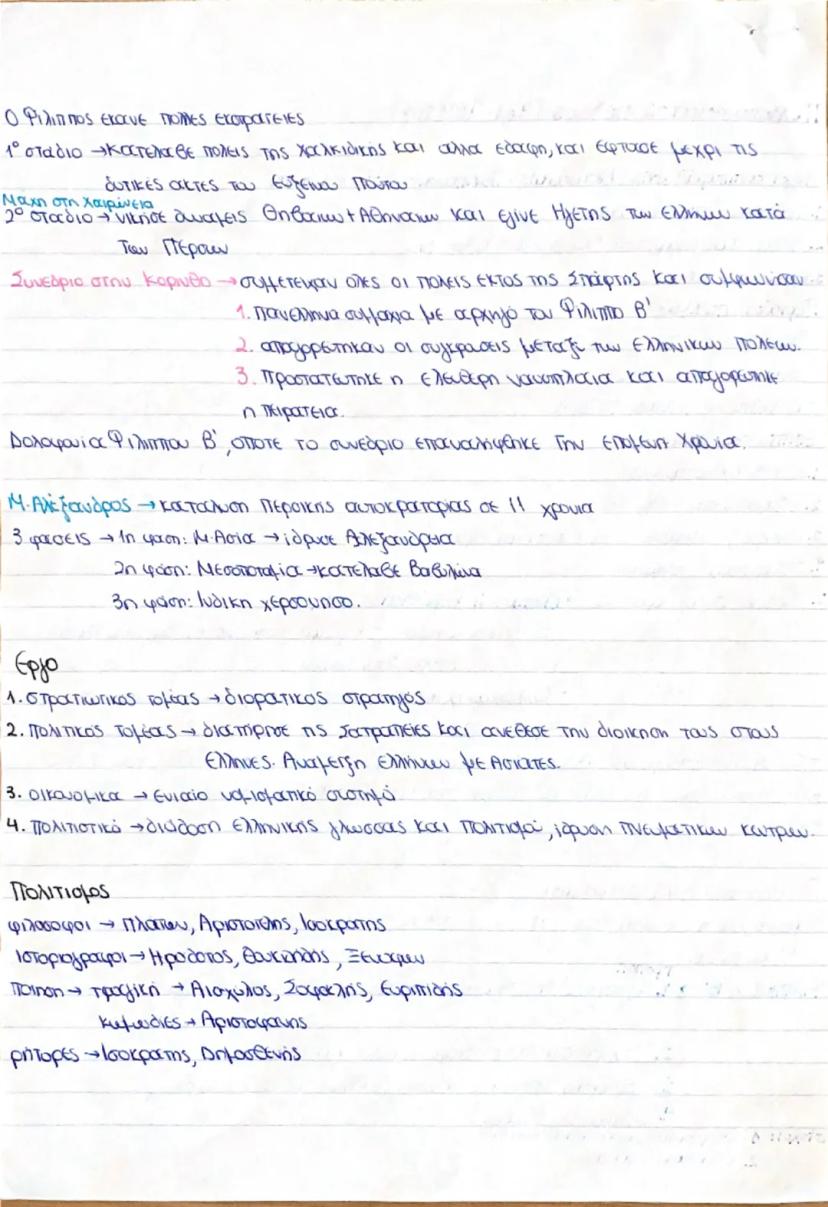 Ο Φιλιππος εκανε πολλες εκστρατειες
1° σταδιο → κατελαβε πολεις της χαλκιδικης και αλλα εδαφη, και εφτασε μεχρι τις
δυτικές ακτες του Ευξεινου Ποντου
Μαχη στη Χαιρώνεια
2° σταδιο → νικησε δυναμεις Θηβαιων + Αθηναιων και εγινε Ηγετης των ελληνων κατά
των Περσων
Συνεδριο στην Κορινθο → συμμετειχαν ολες οι πολεις εκτος της Σπάρτης και συμφωνησαν
1. Πανελληνια συμμαχια με αρχηγό τον Φιλιππο Β'
2. απαγορετηκαν οι συγκρασεις μεταξυ των ελληνικων πολεων.
3. Προστατεύτηκε η ελευθερη ναυσιπλοια και απαγορευτηκε
η πειρατεια.
Δολοφονια Φιλιππου Β', οποτε το συνεδριο επαναληφθηκε την επομενη χρονια.
Μ. Αλέξανδρος → καταλυση περσικης αυτοκρατοριας σε 11 χρονια
3 φασεις → 1η φαση: Μ. Ασια → ίδρυσε Αλεξανδρεια
2η φαση: Μεσοποταμια → κατελαβε Βαβυλωνα
3η φαση: Ινδικη χερσονησο.
Εργο
1. στρατιωτικος τομέας → διορατικος στρατηγός
2. πολιτικός τομέας → διατηρησε τις σατραπειες και ανεθεσε την διοικηση τους στους
Ελληνες. Αναμειξη ελληνων με Ασιατες.
3. οικονομικα → ενιαιο νομισματικό συστημα
4. πολιτιστικό → διάδοση ελληνικής γλωσσας και πολιτισμού, ιδρυση πνευματικων κεντρων.
Πολιτισμος
φιλοσοφοι → Πλατων, Αριστοτελης, Ισοκρατης
ιστοριογραφοι → Ηροδοτος, Θουκυδιδης, Ξενοφων
ποιηση → τραγικη → Αισχυλος, Σοφοκλής, Ευριπιδης
κωμωδιες → Αριστοφανης
ρήτορες → Ισοκρατης, Δημοσθενής